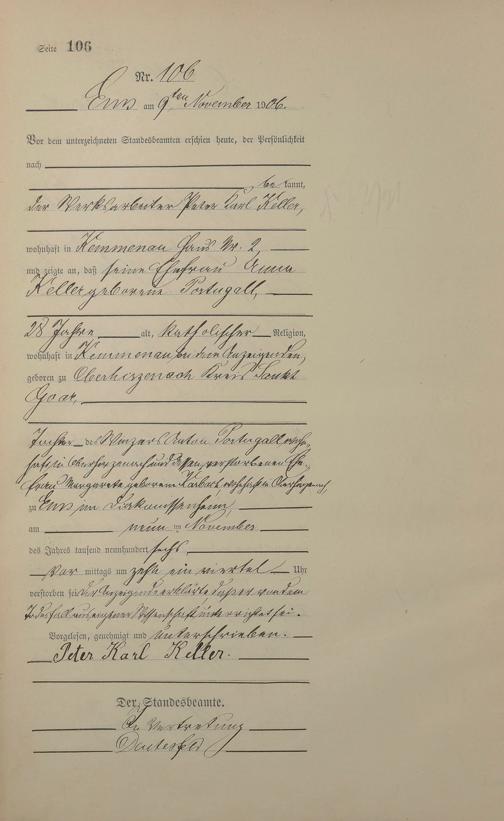 Seite 106
Nr. 106
Ems am 9ten November 1906.
Vor dem unterzeichneten Standesbeamten erschien heute, der Persönlichkeit
nach
be kannt,
der Werksarbeiter Peter Karl Keller,
wohnhaft in Kemmenau Haus Nr. 2
und zeigte an, daß seine Ehefrau Anna
Keller geborene Portugall,
28 Jahre alt, katholischer Religion,
wohnhaft in Kemmenau bei dem Anzeigenden,
geboren zu Oberhirzenach Kreis Sankt
Goar,
Tochter des Winzers Anton Portugall wohn-
haft in Oberhirzenach und dessen verstorbenen Ehe-
frau Margarete geborene wohnhaft in Oberhirzenach,
zu Ems im Diakonissenheim,
am neun ten November
des Jahres tausend neunhundert sechs
Vor mittags um zehn ein viertel Uhr
verstorben sei. Der Anzeigende erklärte daß er von dem
Todesfall aus eigener Wissenschaft unterrichtet sei.
Vorgelesen, genehmigt und unterschrieben.
Peter Karl Keller.
Der Standesbeamte.
In Vertretung